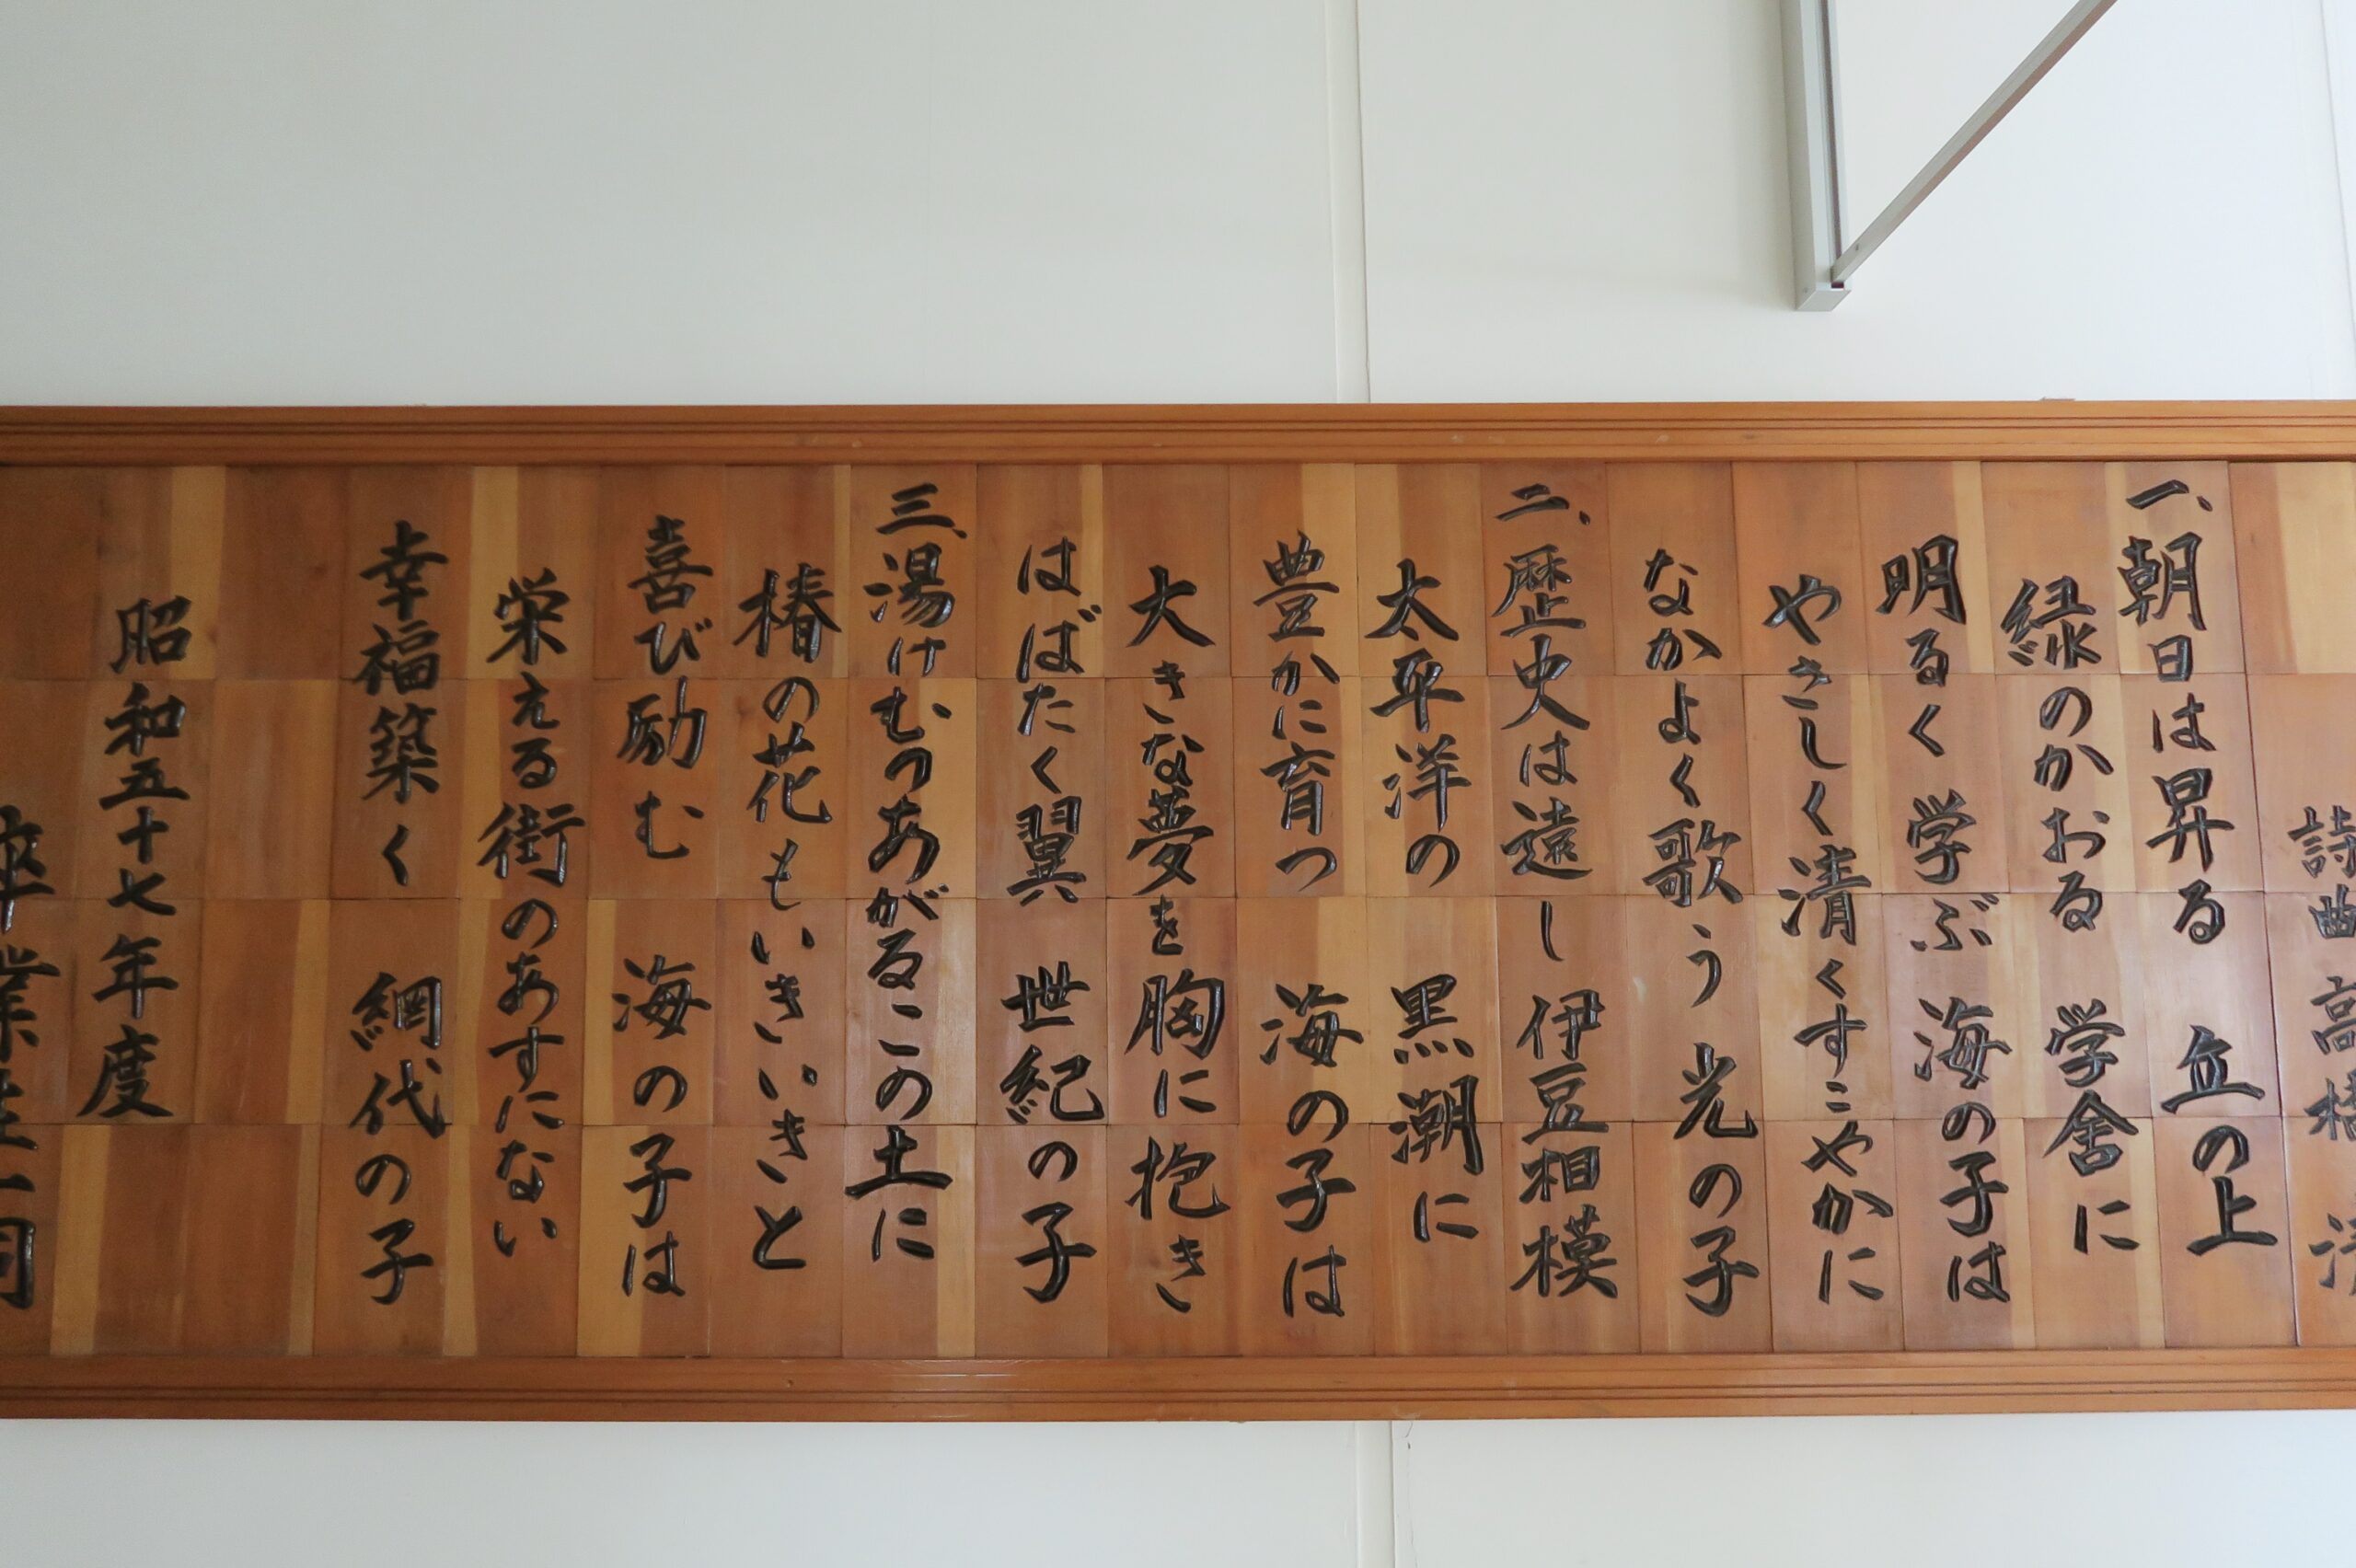 詩曲 高橋
一、朝日は昇る 丘の上
緑のかおる 学舎に
明るく学ぶ 海の子は
やさしく清くすこやかに
なかよく歌う 光の子
二、歴史は遠し 伊豆相模
太平洋の 黒潮に
豊かに育つ 海の子は
大きな夢を胸に抱き
はばたく翼 世紀の子
三、湯けむりあがるこの土に
椿の花もいきいきと
喜び励む 海の子は
栄える街のあすにない
幸福築く 網代の子
昭和五十七年度
卒業生一同